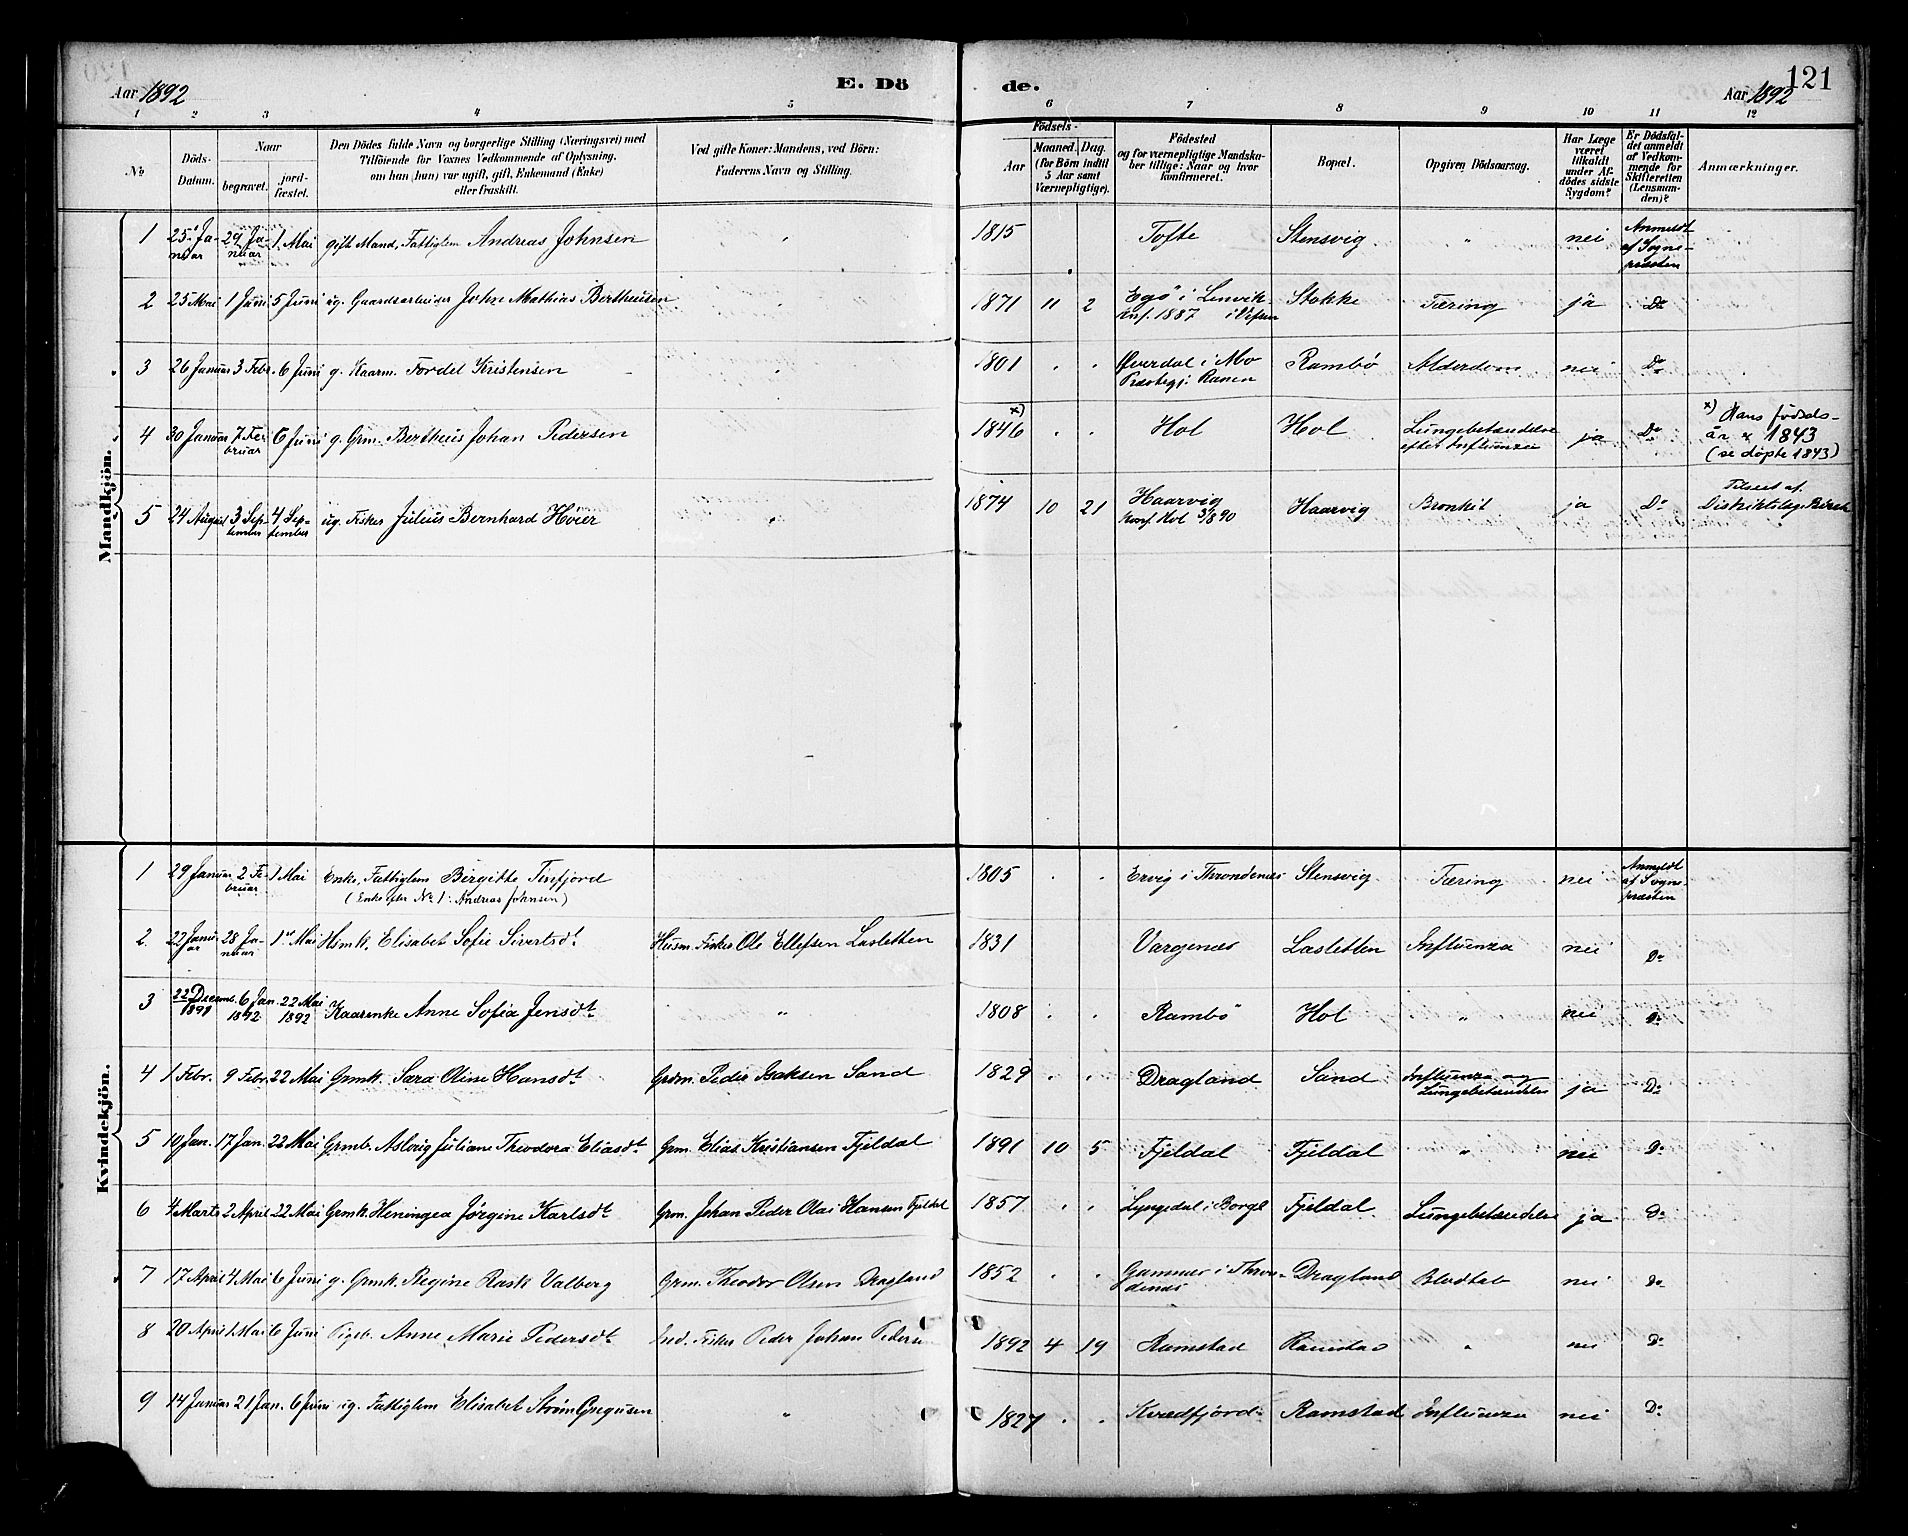 Aar 1892 E. Dö de. Aar 1892 121
1 2 3 4 5 6 7 8 9 10 11 12
No Döds-Datum. Naar begravet. jord-fæstet. Den Dödes fulde Navn og borgerlige Stilling (Næringsvei) med Tilföiende for Voxnes Vedkommende af Oplysning. om han (hun) var ugift, gift, Enkemand (Enke) eller fraskilt. Ved gifte Koner: Mandens, ved Börn: Faderens Navn og Stilling. Födsels- Aar Maaned. Dag. (for Börn indtil 5 Aar samt Værnepligtige). Födested og for værnepligtige Mandskaber tillige: Naar og hvor konfirmeret. Bopæl. Opgiven Dödsaarsag. Har Læge været tilkaldt under Afdödes sidste Sygdom? Er Dödsfaldet anmeldt af Vedkommende for Skifteretten (Lensmanden)? Anmærkninger.
Mandkjön.
1 25 Januar 29 Januar 1 Mai gift Mand, Fattiglem Andreas Johnsen " 1815 Tofte Stensvig " nei Anmeldt af Sognepræsten
2 25 Mai 1 Juni 5 Juni ug. Gaardsarbeider Johe Mathias Bertheusen " 1871 11 2 Egø i Lenvik Konf. 1887 i Vefsen Stokke Tæring ja Do
3 26 Januar 3 Febr. 6 Juni g. Kaarm. Fordel Kristensen " 1801 . . Øverdal i Mo Præstegj. i Ranen Rambø Alderdom nei Do
4 30 Januar 7 Februar 6 Juni g. Grm. Bertheus Johan Pedersen 1846 x) . . Hol Hol Lungebetændelse efter Influenza ja Do x) Hans fødselsår er 1843 (se døpte 1843)
5 24 August 3 September 4 September ug. Fisker Julius Bernhard Høier " 1874 10 21 Haarvig Konf Hol 3/8 90 Haarvig Bronkit ja Do Tilseet af Distriktslæge
Kvindekjön.
1 29 Januar 2 Februar 1 Mai Enke, Fattiglem Birgitte Finfjord (Enke efter No 1: Andreas Johnsen) 1805 . . Ervig i Throndenes Stensvig Tæring nei Anmeldt af Sognepræsten
2. 22 Januar 28 Januar 1ste Mai Hmk. Elisabet Sofie Sivertsdt Husm. Fisker Ole Ellefsen Lasletten 1831 Vargenes Lasletten Influenza nei Do
3 22 Decemb. 1891 6 Jan. 1892 22 Mai 1892 Kaarenke Anne Sofia Jensdt. " 1808 . . Rambø Hol " nei Do
4 1 Febr. 9 Febr. 22 Mai Grmk. Sara Oline Hansdt Grdm. Peder Isaksen Sand 1829 . . Dragland Sand Influenza og Lungebetændelse ja Do
5 10 Jan. 17 Jan. 22 Mai Grmb. Aslovig Juliane Theodora Eliasdt. Grm. Elias Kristiansen Fjeldal 1891 10 5 Fjeldal Fjeldal " nei Do
6 4 Marts 2 April 22 Mai Grmk. Heningea Jørgine Karlsdt Grm. Johan Peder Olai Hansen Fjeldal 1857 . . Lyngedal i Borge Fjeldal Lungebetændelse ja Do
7 17 April 4 Mai 6 Juni g. Grmk. Regine Rask Valberg Grm. Theodor Olsen Dragland 1852 . . i Throndenes Dragland Blodtab nei Do
8 20 April 1 Mai 6 Juni Pigeb. Anne Marie Pedersdt Ind. Fisker Peder Johan Peders 1892 4 19 Ramstad Ramstad " nei Do
9 14 Januar 21 Jan. 6 Juni ug. Fattiglem Elisabet Strøm Gregusen " 1827 . . Kvædfjord Ramstad Influenza nei Do